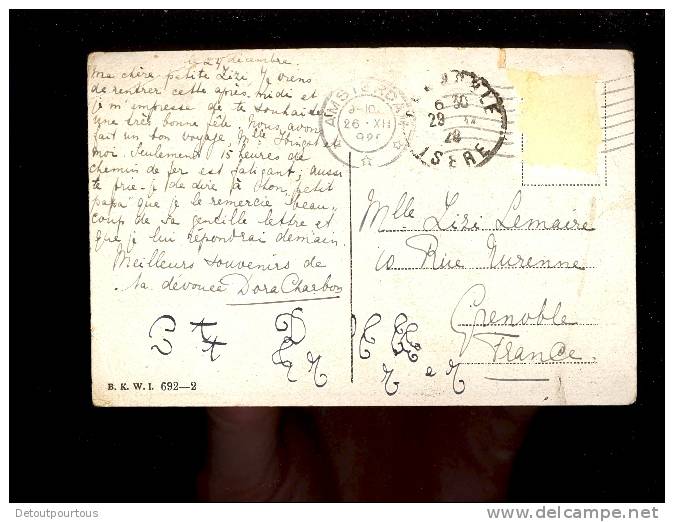 le 24 décembre.
Ma chère petite Lizi, Je viens
de rentrer cette après-midi et
je m'empresse de te souhaiter
une très bonne fête. Nous avons
fait un bon voyage, Mlle et
moi. Seulement 15 heures de
chemin de fer est fatigant; aussi
te prie-je de dire à ton petit
papa que je le remercie beau-
coup de sa gentille lettre et
que je lui répondrai demain.
Meilleurs souvenirs de
ta dévouée Dora Charbon
B. K. W. I. 692—2
AMSTERDAM
26.XII
GRENOBLE
6 30
29
28
ISERE
Mlle Lizi Lemaire
10 Rue Turenne
Grenoble
France.
Detoutpourtous
www.delcampe.net